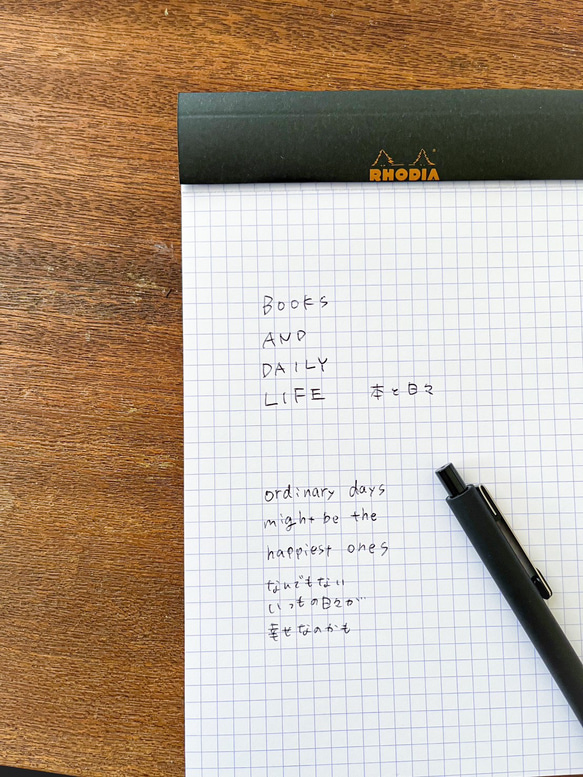 RHODIA
BOOKS
AND
DAILY
LIFE 本と日々
ordinary days
might be the
happiest ones
なんでもない
いつもの日々が
幸せなのかも